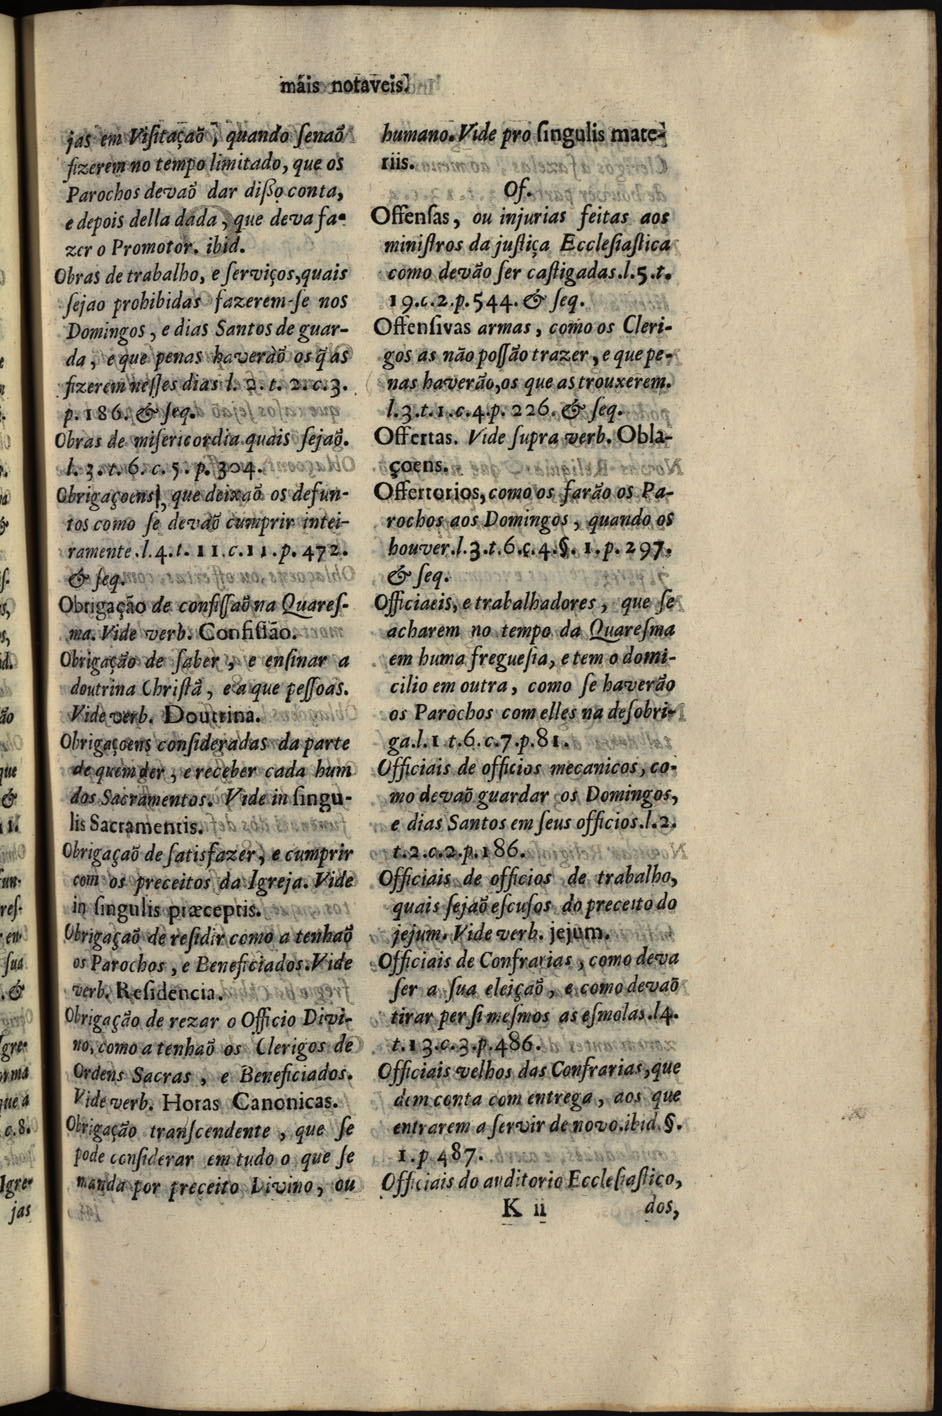 máis notaveis.
jas em Visitaçaõ, quando senaõ
fizerem no tempo limitado, que os
Parochos devaõ dar disso conta,
e depois della dada, que deva fa-
zer o Promotor. ibid.
Obras de trabalho, e serviços, quais
sejao prohibidas fazerem-se nos
Domingos, e dias Santos de guar-
da, e que penas haveràõ os q̃ as
fizerem nesses dias l. 2. t. 2. c. 3.
p. 186. & seq.
Obras de misericordia quais sejaõ.
l. 3. t. 6. c. 5. p. 304.
Obrigaçoens, que deixaõ os defun-
tos como se devaõ cumprir intei-
ramente. l. 4. t. 11. c. 11. p. 472.
& seq.
Obrigação de confissaõ na Quares-
ma. Vide verb. Confissão.
Obrigação de saber, e ensinar a
doutrina Christã, e a que pessoas.
Vide verb. Doutrina.
Obrigaçoens consideradas da parte
de quem der, e receber cada hum
dos Sacramentos. Vide in singu-
lis Sacramentis.
Obrigaçaõ de satisfazer, e cumprir
com os preceitos da Igreja. Vide
in singulis præceptis.
Obrigaçaõ de residir como a tenhaõ
os Parochos, e Beneficiados. Vide
verb. Residencia.
Obrigação de rezar o Officio Divi-
no, como a tenhaõ os Clerigos de
Ordens Sacras, e Beneficiados.
Vide verb. Horas Canonicas.
Obrigação transcendente, que se
pode considerar em tudo o que se
manda por preceito Divino, ou
humano. Vide pro singulis mate-
riis.
Of.
Offensas, ou injurias feitas aos
ministros da justiça Ecclesiastica
como devão ser castigadas. l. 5. t.
19. c. 2. p. 544. & seq.
Offensivas armas, como os Cleri-
gos as não possão trazer, e que pe-
nas haverão, os que as trouxerem.
l. 3. t. 1. c. 4. p. 226. & seq.
Offertas. Vide supra verb. Obla-
çoens.
Offertorios, como os farão os Pa-
rochos aos Domingos, quando os
houver. l. 3. t. 6. c. 4. §. 1. p. 297.
& seq.
Officiaeis, e trabalhadores, que se
acharem no tempo da Quaresma
em huma freguesia, e tem o domi-
cilio em outra, como se haverão
os Parochos com elles na desobri-
ga. l. 1 t. 6. c. 7. p. 81.
Officiais de officios mecanicos, co-
mo devaõ guardar os Domingos,
e dias Santos em seus officios. l. 2.
t. 2. c. 2. p. 186.
Officiais de officios de trabalho,
quais sejaõ escusos do preceito do
jejum. Vide verb. jejum.
Officiais de Confrarias, como deva
ser a sua eleiçaõ, e como devaõ
tirar per si mesmos as esmolas. l4.
t. 13. c. 3. p. 486.
Officiais velhos das Confrarias, que
dem conta com entrega, aos que
entrarem a servir de novo. ibid. §.
1. p 487.
Officiais do auditorio Ecclesiastico,
K ii dos,